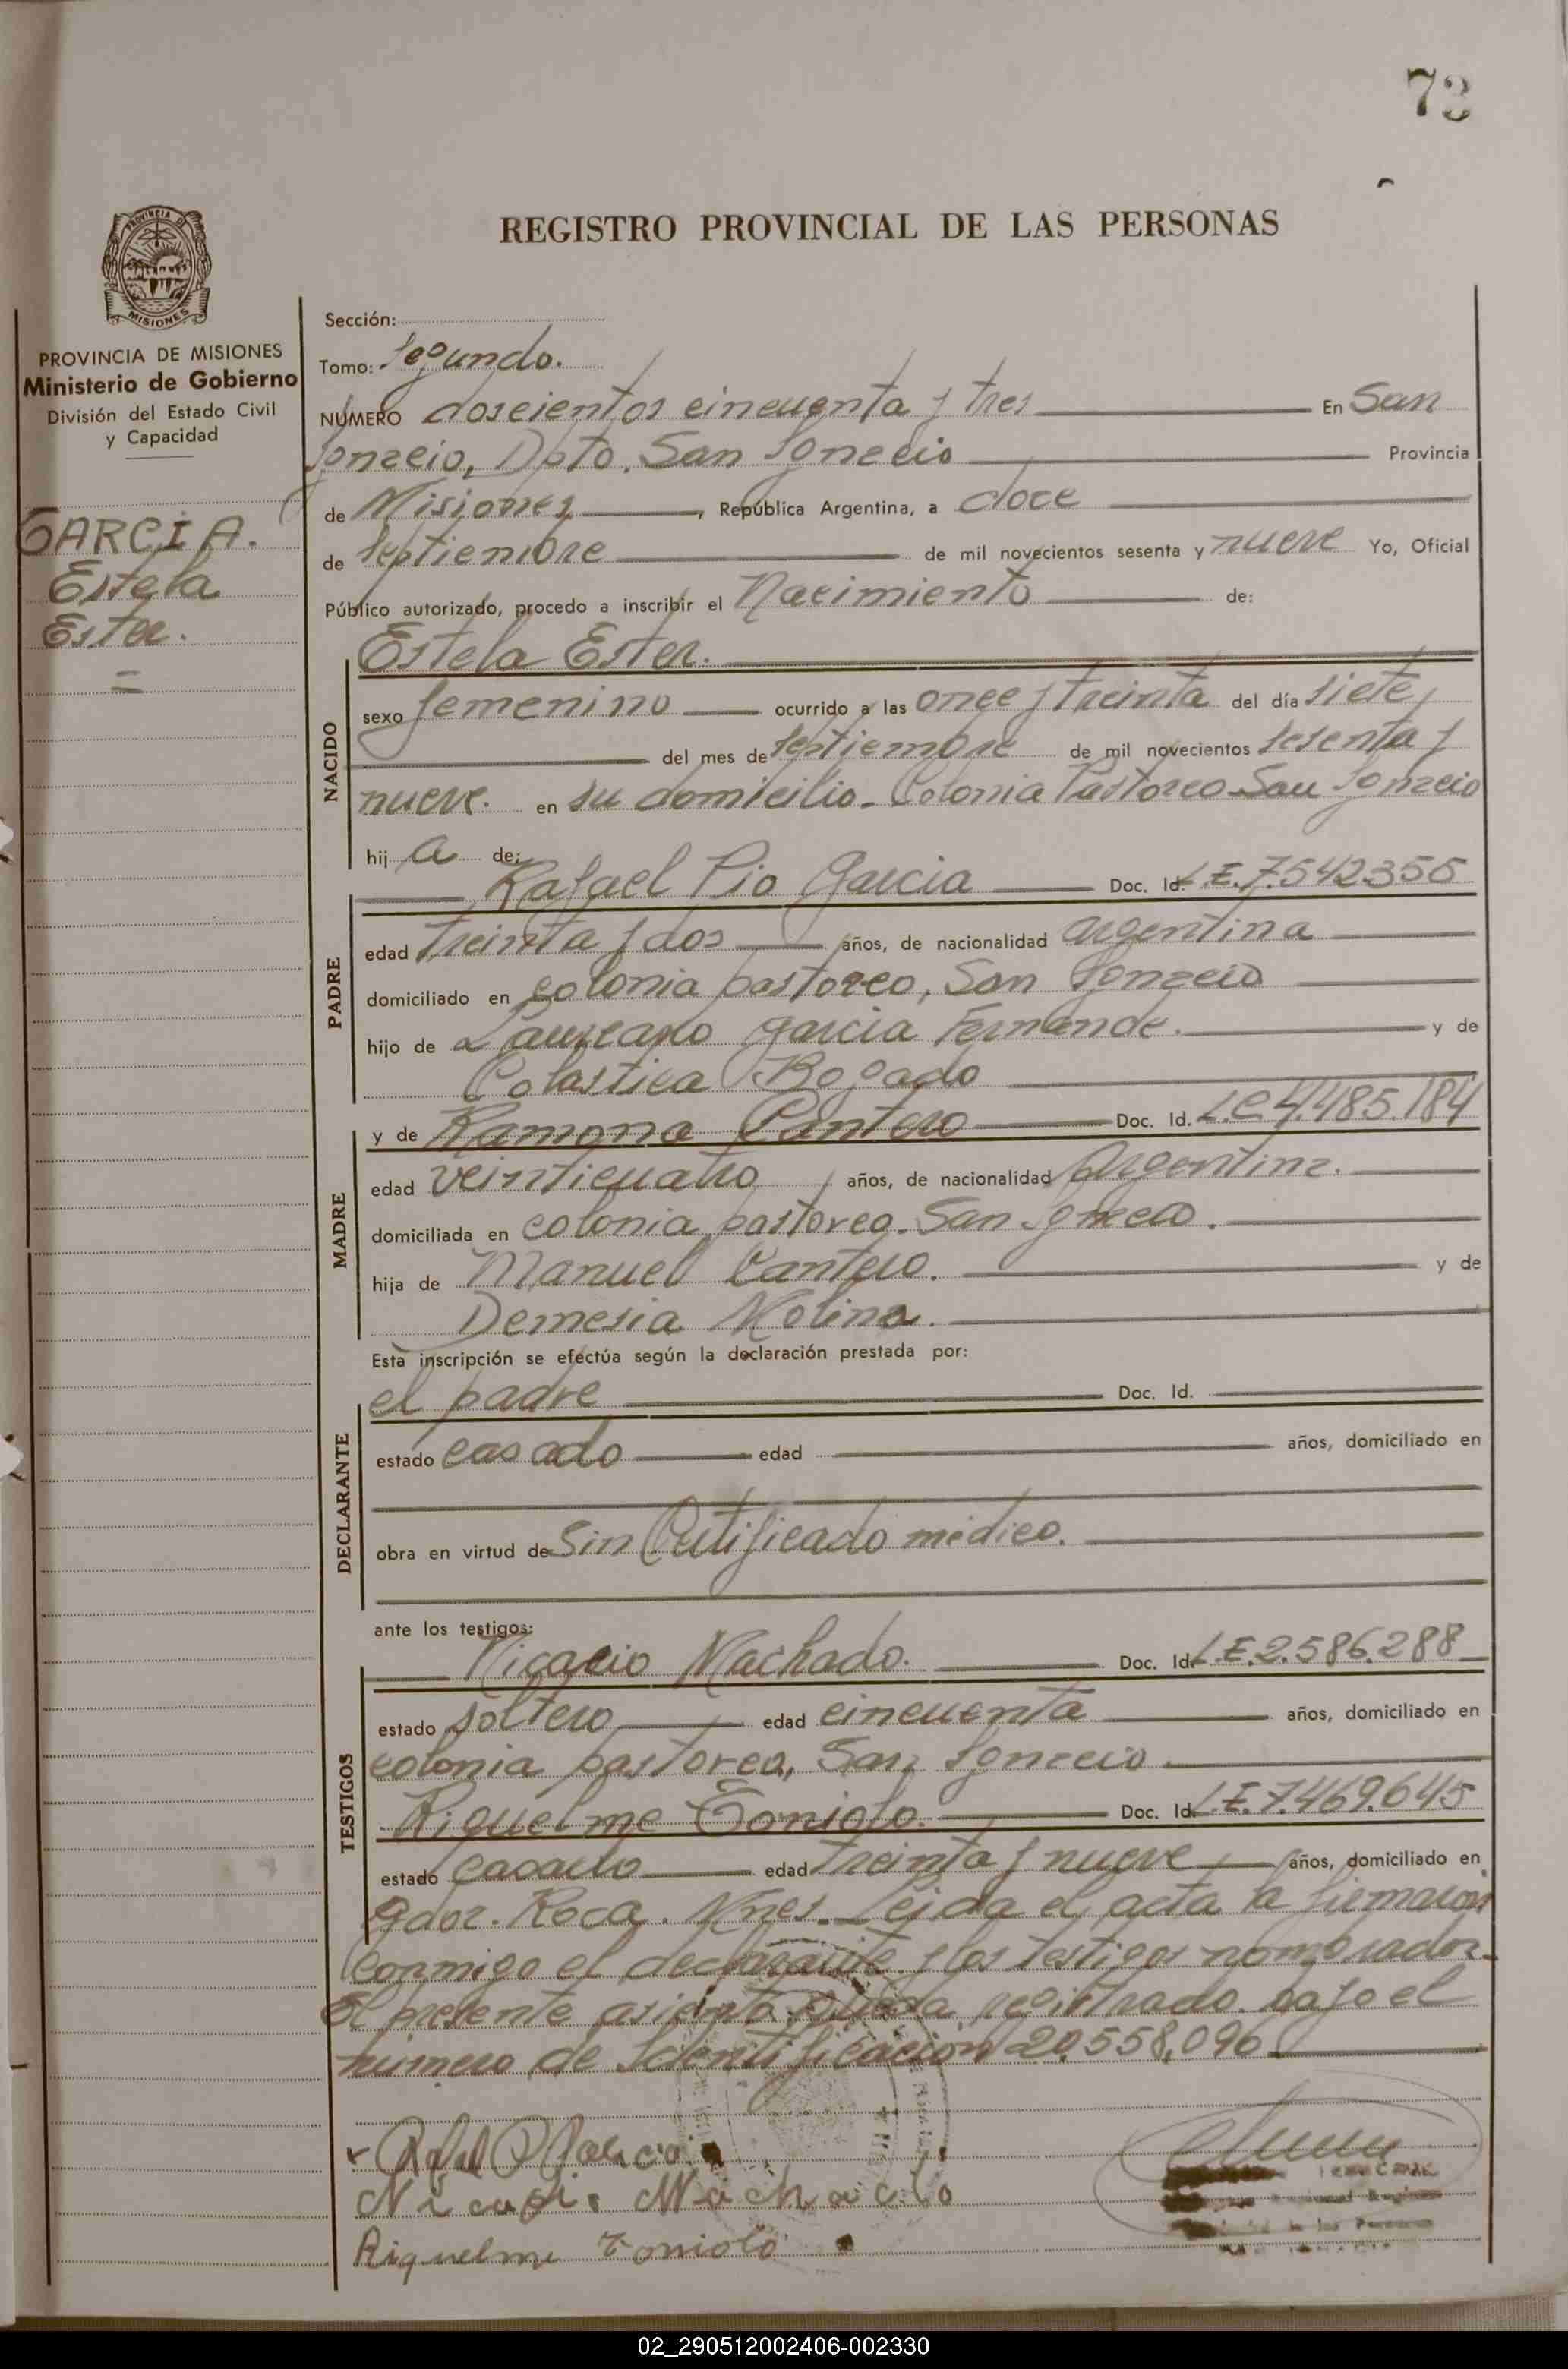 73
REGISTRO PROVINCIAL DE LAS PERSONAS
PROVINCIA DE MISIONES
PROVINCIA DE MISIONES
Ministerio de Gobierno
División del Estado Civil
y Capacidad
GARCÍA.
Estela
Ester.
=
Sección:
Tomo: Segundo.
NUMERO doscientos cincuenta y tres En San
Ignacio, Dpto. San Ignacio Provincia
de Misiones, República Argentina, a doce
de Septiembre de mil novecientos sesenta y nueve Yo, Oficial
Público autorizado, procedo a inscribir el Nacimiento de:
NACIDO
Estela Ester.
sexo femenino ocurrido a las once y treinta del día siete,
del mes de Septiembre de mil novecientos sesenta y
nueve. en su domicilio. Colonia Pastoreo San Ignacio
hij a de:
PADRE
Rafael Pio Garcia Doc. Id. L.E.7.542.355
edad treinta y dos años, de nacionalidad argentina
domiciliado en colonia pastoreo, San Ignacio
hijo de Laureano Garcia Fernande. y de
Colastica Bogado
MADRE
y de Ramona Cantero Doc. Id. L.C 4.485.184
edad veinticuatro años, de nacionalidad Argentina.
domiciliada en colonia pastoreo. San Ignacio.
hija de Manuel Cantero. y de
Demesia Molina.
Esta inscripción se efectúa según la declaración prestada por:
DECLARANTE
el padre Doc. Id.
estado casado edad años, domiciliado en
obra en virtud de Sin Certificado médico.
ante los testigos:
TESTIGOS
Nicacio Machado. Doc. Id. L.E.2.586.288
estado soltero edad cincuenta años, domiciliado en
colonia pastoreo, San Ignacio.
Riquelme Toniolo. Doc. Id. L.E.7.469.645
estado casado edad treinta y nueve años, domiciliado en
Gdor. Roca. Mnes. Leida el acta la firmaron
conmigo el declarante y los testigos nombrados.
El presente asiento queda registrado bajo el
número de Identificación 20.558.096
Rafael P Garcia
Machado
Riquelme Toniolo
02_290512002406-002330